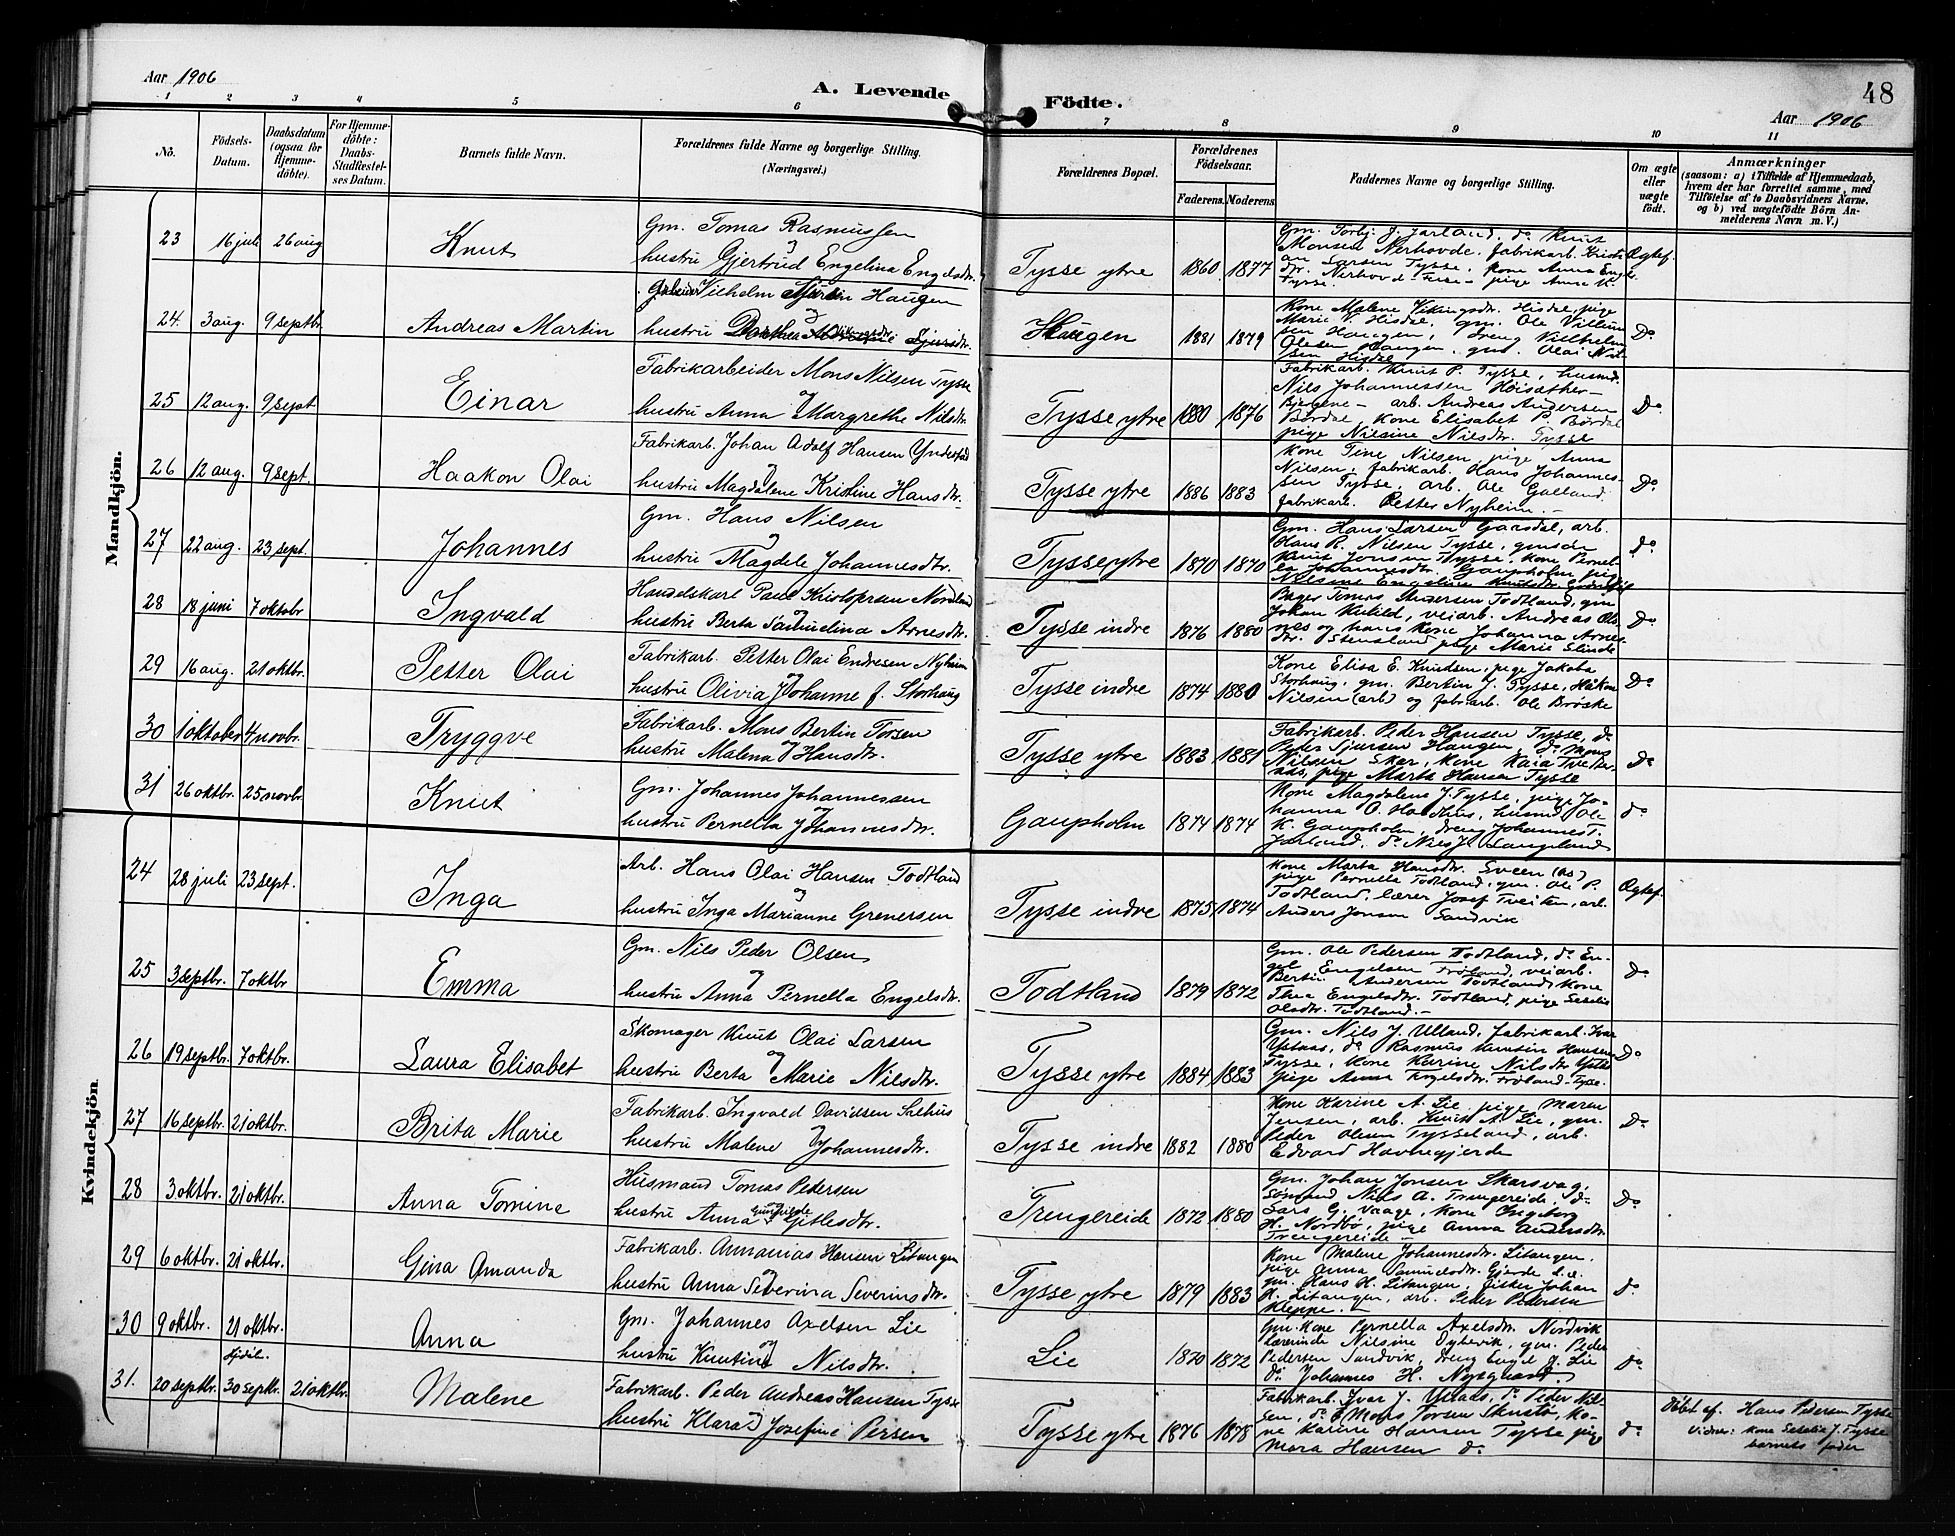 48
Aar 1906
A. Levende Födte.
Aar 1906
1 2 3 4 5 6 7 8 9 10 11
No.
Födsels-Datum.
Daabsdatum (ogsaa for Hjemme-döbte).
For Hjemme-döbte: Daabs-Stadfæstel-ses Datum.
Barnets fulde Navn.
Forældrenes fulde Navne og borgerlige Stilling.
(Næringsvei.)
Forældrenes Bopæl.
Forældrenes Födselsaar.
Faderens. Moderens.
Faddernes Navne og borgerlige Stilling.
Om ægte eller uægte födt.
Anmærkninger
(saasom: a) i Tilfælde af Hjemmedaab,
hvem der har forrettet samme, med
Tilföielse af to Daabsvidners Navne,
og b) ved uægtefödte Börn An-
melderens Navn m. V.)
Mandkjön.
23 16 juli 26 aug Knut
Gm. Tomas Rasmussen
og
hustru Gjertrud Engelina Engelsdtr.
Tysse ytre 1860 1877
Monsen Nerhovde, fabrikarb. Kristi-
an Larsen Tysse, kone Anna Engls.
Ægtef.
24. 3 aug. 9 septbr. Andreas Martin
Arbeider Vilhelm Haugen
hustru Sjursdtr.
Haugen 1881 1879
Kone Malene Vikingsdtr. Hisdal, pige
Marie V. Hisdal, gm. Ole Villum
sen Haugen, dreng Vilhelm
Olesen Haugen, gm. Olai Nil-
sen Hisdal
Do
25 12 aug. 9 sept Einar
Fabrikarbeider Mons Nilsen Tysse
og
hustru Anna Margrethe Nilsdtr.
Tysse ytre 1880 1876
Fabrikarb. Knut P. Tysse, husmd.
Nils Johannessen Höisæther
Bjergene - arb. Andreas Andersen
Bördal, kone Elisabet P. Bördal
pige Nilsine Nilsdtr. Tysse
Do
26 12 aug. 9 sept. Haakon Olai
Fabrikarb. Johan Adolf Hansen Yndestad
og
hustru Magdalene Kristine Hansdtr.
Tysse ytre 1886 1883
Kone Tine Nilsen, pige Anna
Nilsen, fabrikarb. Hans Johannes-
sen Tysse, arb. Ole Galland.
fabrikarb. Petter Nyheim. -
Do
27 22 aug. 23 sept. Johannes
Gm. Hans Nilsen
og
hustru Magdele Johannesdtr.
Tysse ytre 1870 1870
Gm. Hans Larsen Gaasdal, arb.
Hans R. Nilsen Tysse, gmsdr.
Knut Jonsen Tysse, kone Pernel-
la Johannesdtr. Gaupholm, pige
Nilsine Engeline Knutsdtr.
Do
28 18 juni 7 oktobr Ingvald
Handelskarl Paul Kristofersen Nordland
og
hustru Berta Samuelina Arnesdtr.
Tysse indre 1876 1880
Bager Tomas Andersen Todtland, gm
Johan Kvitild, veiarb. Andreas Ols
nes og hans kone Johanna Arnes-
dtr. Stensland pige Marie Slinde
Do
29 16 aug. 21 oktbr. Petter Olai
Fabrikarb. Petter Olai Endresen Nyheim
og
hustru Olivia Johanne f. Storhaug
Tysse indre 1874 1880
Kone Elisa E. Knudsen, pige Jakoba
Storhaug, gm. Bertin J. Tysse, Håkon
Nilsen (arb) og fabrarb. Ole Bröske
Do
30 1 oktober 4 novbr. Tryggve
Fabrikarb. Mons Bertin Torsen
og
hustru Malena Hansdtr.
Tysse ytre 1883 1881
Fabrikarb. Peder Hansen Tysse, do
Peder Sjursen Haugen, do Mons
Nilsen Sker, kone Kaia Tveiter-
aas, pige Marta Hansen Tysse
Do
31 26 oktbr. 25 novbr. Knut
Gm. Johannes Johannessen
og
hustru Pernella Johannesdtr.
Gaupholm 1874 1874
Kone Magdalena J. Tysse, pige Jo-
hanna O. husmd Ole
K. Gaupholm, dreng Johannes T.
Jarland, do Nils J. Langeland
do
Kvindekjön.
24 28 juli 23 sept. Inga
Arb. Hans Olai Hansen Todtland
og
hustru Inga Marianne Grenersen
Tysse indre 1875 1874
Kone Marta Hansdtr. Sveen (Os)
pige Pernella Todtland, gm. Ole P.
Todtland, lærer Josef Tveiten, arb.
Anders Jonson Sandvik
Ægtef.
25 3 septbr. 7 oktbr Emma
Gm. Nils Peder Olsen
og
hustru Anna Pernella Engelsdtr.
Todtland 1879 1872
Gm. Ole Pedersen Todtland, do En-
gel Engelsen Fröland, veiarb.
Bertin Andersen Todtland, kone
Thea Engelsdtr. Todtland, pige Seselia
Olsdtr. Todtland. -
Do
26 19 septbr. 7 oktbr. Laura Elisabet
Skomager Knut Olai Larsen
og
hustru Berta Marie Nilsdtr.
Tysse ytre 1884 1883
Gm. Nils J. Ulland, fabrikarb. Ivar
Ystaas, do Rasmus Hansen
Tysse, kone Karine Nilsdtr.
pige Anna Engelsdtr. Fröland-Tysse.
Do
27 16 septbr. 21 oktbr. Brita Marie
Fabrikarb. Ingvald Davidsen Sælhus
og
hustru Malene Johannesdtr.
Tysse indre 1882 1880
Kone Karine A. Lie, pige Maren
Jensen, arb. Knut A. Lie, gm.
Peder Olsen Tysseland, arb.
Edvard Havhegjerde
Do
28 3 oktbr. 21 oktbr. Anna Tomine
Husmand Tomas Pedersen
og
hustru Anna Gunhilde Gitlesdtr.
Trengereide 1872 1880
Gm. Johan Jonsen Skarsvag,
Sömand Nils A. Trengereide, do
Lars G. Vaage, kone Ingeborg
H. Nordbö, pige Anna Andersdtr.
Trengereide -
Do
29 6 oktbr. 21 oktbr. Gina Amanda
Fabrikarb. Annanias Hansen Litangen
og
hustru Anna Severina Severinsdtr.
Tysse ytre 1879 1883
Kone Malene Johannesdtr. Litangen.
pige Anna Samuelsdtr. Gjerde s.d.
gm. Hans H. Litangen, fisker Johan
H. Litangen, arb. Peder Pedersen
Kleppe. -
Do
30 9 oktbr. 21 oktbr. Anna
Gm. Johannes Axelsen Lie
og
hustru Knutine Nilsdtr.
Lie 1870 1872
Gm.kone Pernella Axelsdtr. Nordvik
Lærerinde Nilsine Dyhevik, gm. Peder
Pedersen Sandvik, dreng Engel J. Lie
do Johannes H. Nysgaard.
Do
31. 20 septbr. Hjdöb. 30 septbr. 21 oktbr. Malene
Fabrikarb. Peder Andreas Hansen Tysse
og
hustru Klara Josefine Persen
Tysse ytre 1876 1878
Fabrikarb. Ivar J. Ystaas, do Peder Nil-
sen, do Mons Torsen Skusta, ko-
ne Karine Hansen Tysse, pige
Mara Hansen do
do
Döbt af. Hans Pedersen Tysse
Vidner: kone Seselie J. Tysse
barnets fader